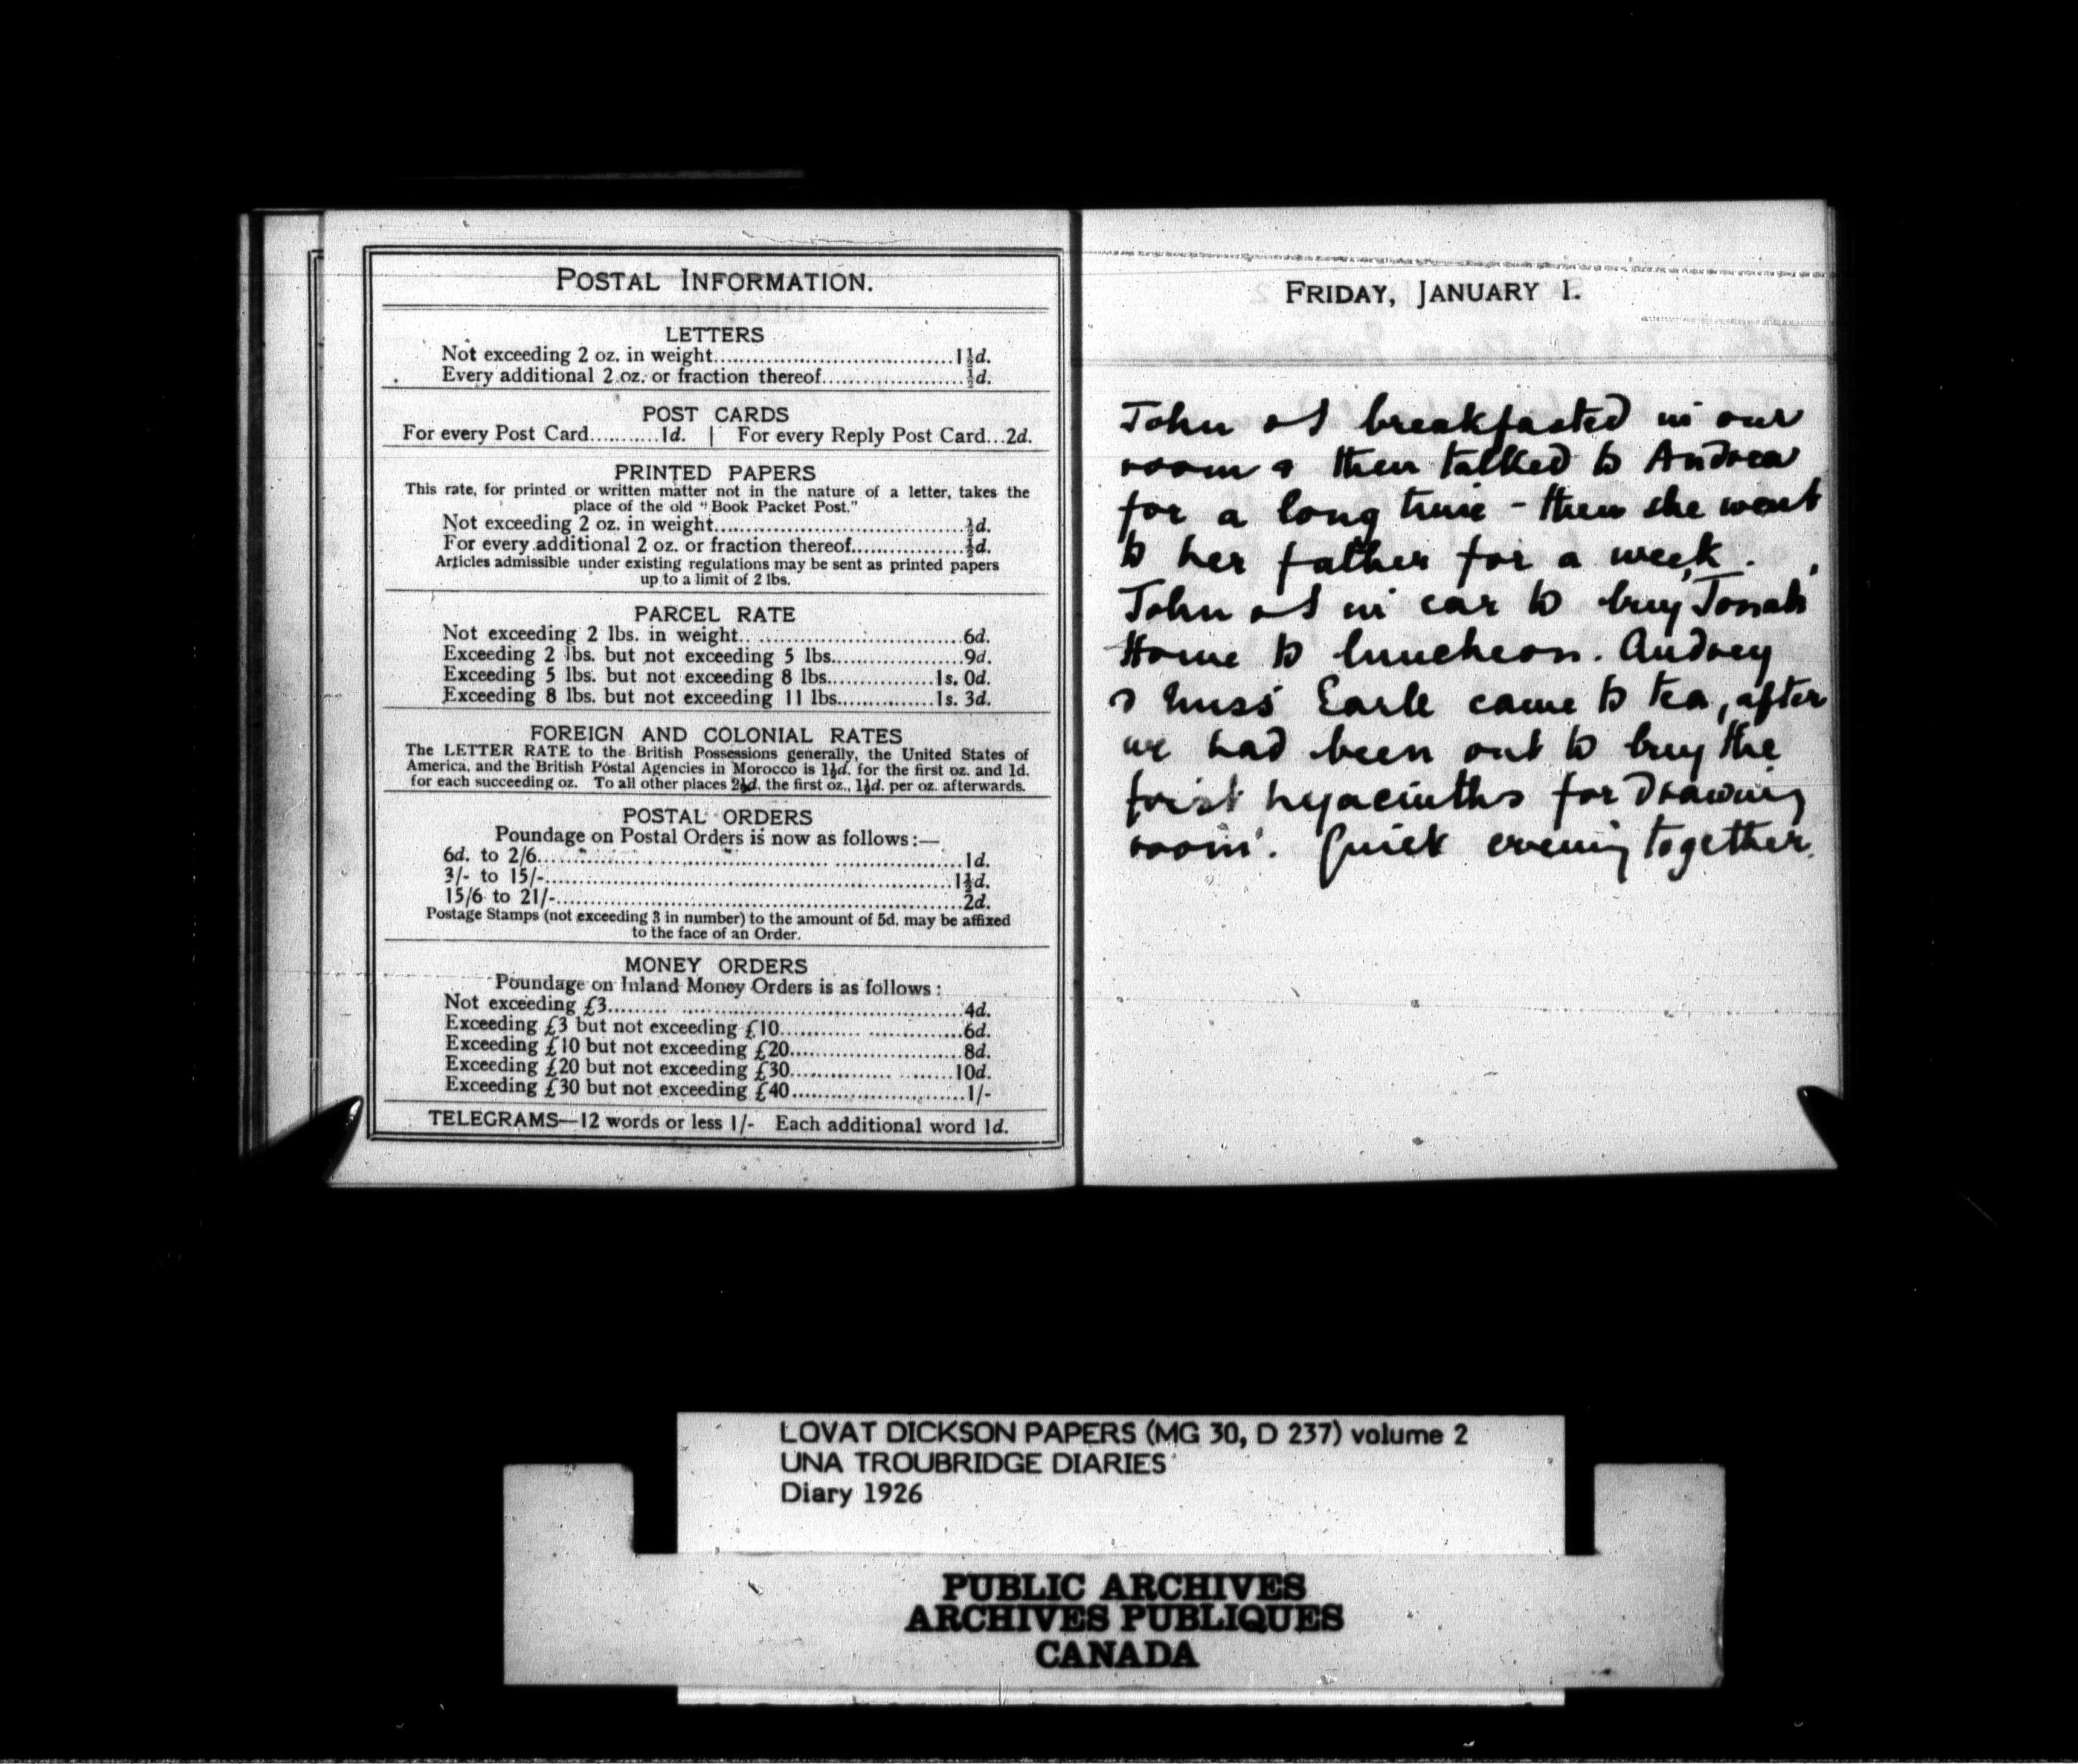 POSTAL INFORMATION.
LETTERS
Not exceeding 2 oz. in weight..................................1½d.
Every additional 2 oz. or fraction thereof.....................½d.
POST CARDS
For every Post Card...........1d. | For every Reply Post Card...2d.
PRINTED PAPERS
This rate, for printed or written matter not in the nature of a letter, takes the
place of the old "Book Packet Post."
Not exceeding 2 oz. in weight...................................½d.
For every additional 2 oz. or fraction thereof................½d.
Articles admissible under existing regulations may be sent as printed papers
up to a limit of 2 lbs.
PARCEL RATE
Not exceeding 2 lbs. in weight.................................6d.
Exceeding 2 lbs. but not exceeding 5 lbs...................9d.
Exceeding 5 lbs. but not exceeding 8 lbs...............1s. 0d.
Exceeding 8 lbs. but not exceeding 11 lbs..............1s. 3d.
FOREIGN AND COLONIAL RATES
The LETTER RATE to the British Possessions generally, the United States of
America, and the British Postal Agencies in Morocco is 1½d. for the first oz. and 1d.
for each succeeding oz. To all other places 2½d. the first oz., 1½d. per oz. afterwards.
POSTAL ORDERS
Poundage on Postal Orders is now as follows:—
6d. to 2/6..............................................................1d.
3/- to 15/-............................................................1½d.
15/6 to 21/-..........................................................2d.
Postage Stamps (not exceeding 3 in number) to the amount of 5d. may be affixed
to the face of an Order.
MONEY ORDERS
Poundage on Inland Money Orders is as follows:
Not exceeding £3..................................................4d.
Exceeding £3 but not exceeding £10..........................6d.
Exceeding £10 but not exceeding £20........................8d.
Exceeding £20 but not exceeding £30.......................10d.
Exceeding £30 but not exceeding £40........................1/-
TELEGRAMS—12 words or less 1/- Each additional word 1d.
FRIDAY, JANUARY 1.
John & I breakfasted in our
room & then talked to Andrea
for a long time - then she went
to her father for a week.
John & I in car to buy Jonah
Home to luncheon. Audrey
& Miss Earle came to tea, after
we had been out to buy the
first hyacinths for drawing
room. Quiet evening together.
LOVAT DICKSON PAPERS (MG 30, D 237) volume 2
UNA TROUBRIDGE DIARIES
Diary 1926
PUBLIC ARCHIVES
ARCHIVES PUBLIQUES
CANADA